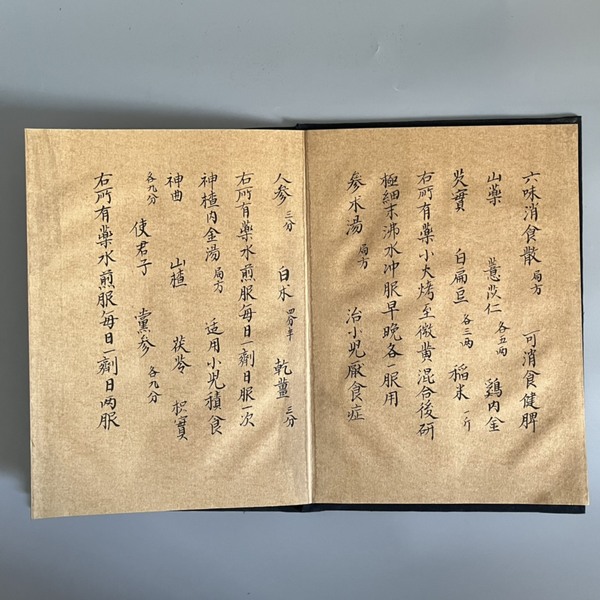 六味消食散 局方 可消食健脾
山藥 薏苡仁 各五两 鷄内金
芡實 白扁豆 各三两 稻米 一斤
右所有藥小火烤至微黄混合後研
極細末沸水冲服早晚各一服用
参术湯 局方 治小児厭食症
人参 三分 白术 四分半 乾薑 三分
右所有藥水煎服每日一劑日服一次
神楂内金湯 局方 适用小児積食
神曲 山楂 茯苓 枳實
各九分 使君子 黨参 各九分
右所有藥水煎服每日一劑日两服